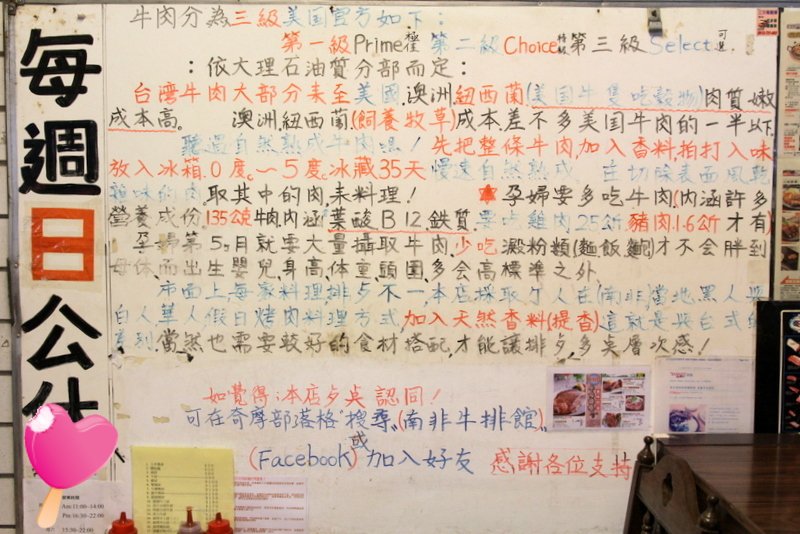 每週日公休
牛肉分為三級美国官方如下：
第一級Prime極佳 第二級Choice特級 第三級Select可選.
：依大理石油質分部而定：
台灣牛肉大部分來至美國.澳洲.紐西蘭(美国牛隻吃穀物)肉質嫩
成本高。 澳洲.紐西蘭(飼養牧草)成本.差不多美国牛肉的一半以下.
先把整條牛肉,加入香料,拍打入味
放入冰箱.0度c～5度c冰藏35天 慢速自然熟成. 在切除表面風乾
的肉,取其中的肉,來料理！ 孕婦要多吃牛肉(内涵許多
營養成份,135公克牛肉,内涵"葉酸B12.鐵質.要吃雞肉25公斤,豬肉1.6公斤才有)
孕婦第5.月就要大量攝取牛肉,少吃澱粉類(麵.飯.麵)才不会胖到
母体,而出生嬰兒,身高体重頭圍,多会高標準之外.
市面上每家料理排歺不一.本店採取个人在(南非)當地黑人與
白人華人假日烤肉料理方式,加入天然香料(提香).這就是與台式的
差別.當然也需要較好的食材搭配,才能讓排歺,多奌層次感！
如覺得：本店歺奌認同！
可在奇摩部落格"搜尋"(南非牛排館)。
或
(Facebook)加入好友 感謝各位支持
營業時間
Am:11:00~14:00
Pm:16:30~22:00
15:30~22:00